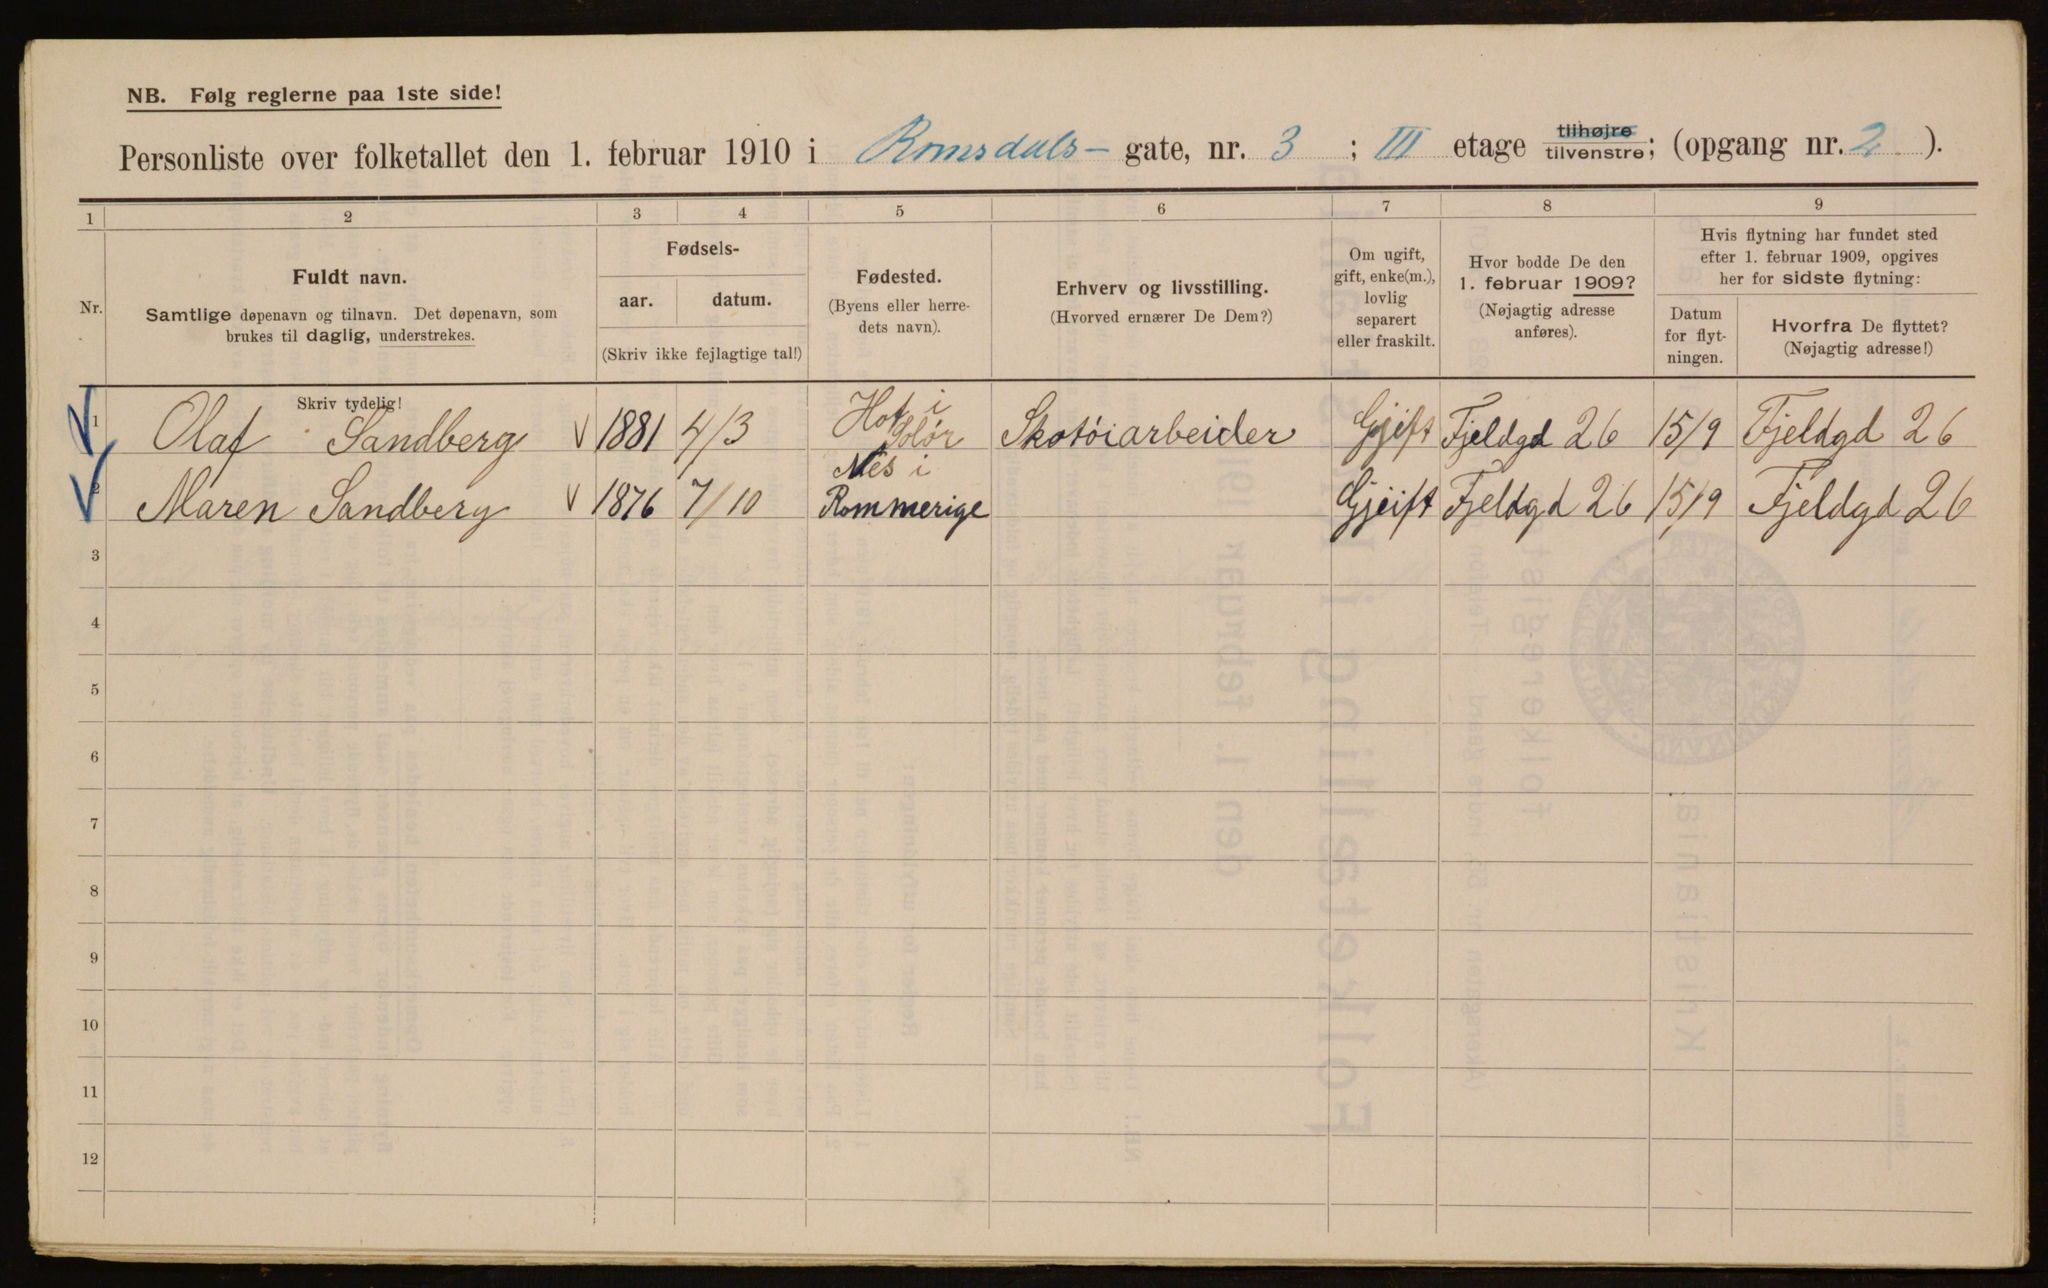 NB. Følg reglerne paa 1ste side!
Personliste over folketallet den 1. februar 1910 i Romsdals- gate, nr. 3 ; III etage tilhøjre tilvenstre; (opgang nr. 2 ).
1 2 3 4 5 6 7 8 9
Nr.
Fuldt navn.
Samtlige døpenavn og tilnavn. Det døpenavn, som
brukes til daglig, understrekes.
Fødsels-
aar. datum.
(Skriv ikke fejlagtige tal!)
Fødested.
(Byens eller herre-
dets navn).
Erhverv og livsstilling.
(Hvorved ernærer De Dem?)
Om ugift,
gift, enke(m.),
lovlig
separert
eller fraskilt.
Hvor bodde De den
1. februar 1909?
(Nøjagtig adresse
anføres).
Hvis flytning har fundet sted
efter 1. februar 1909, opgives
her for sidste flytning:
Datum
for flyt-
ningen.
Hvorfra De flyttet?
(Nøjagtig adresse!)
Skriv tydelig!
1 Olaf Sandberg 1881 4/3 Hof i Solør Skotøiarbeider Gjift Fjeldgd 26 15/9 Fjeldgd 26
2 Maren Sandberg 1876 7/10 Nes i Rommerige Gjift Fjeldgd 26 15/9 Fjeldgd 26
3
4
5
6
7
8
9
10
11
12